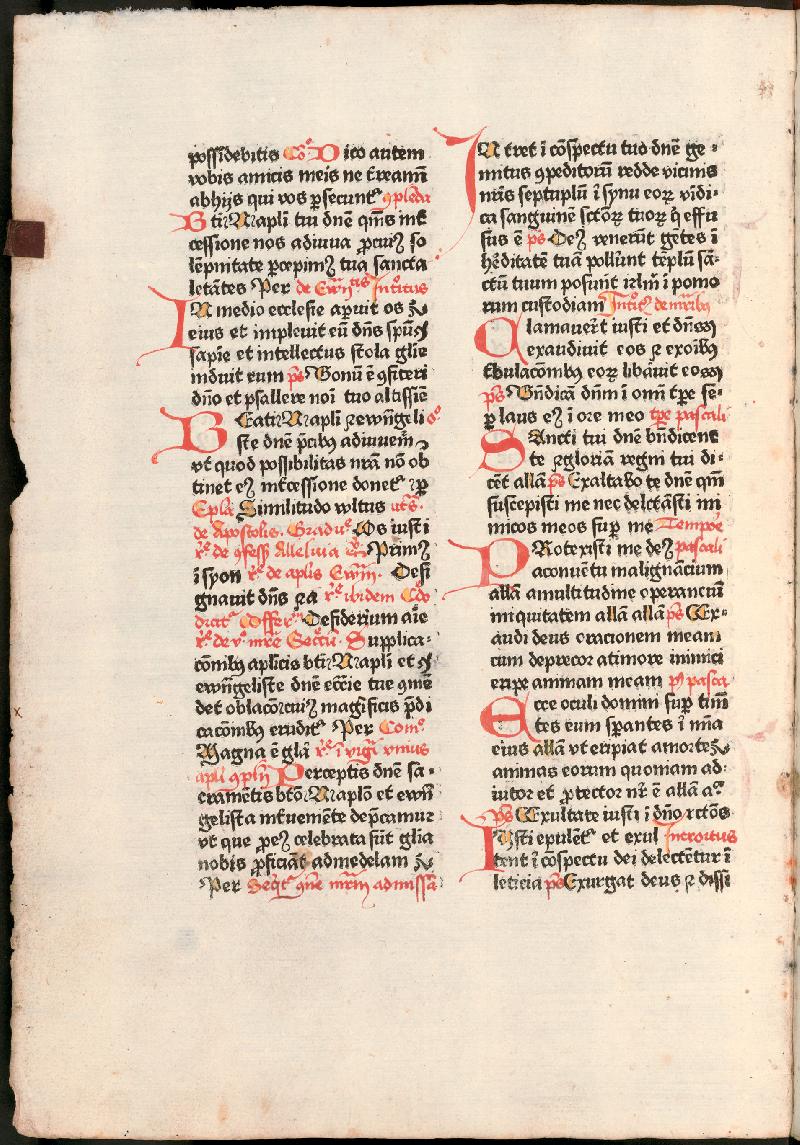 possidebitis Cō° Dico autem
vobis amicis meis ne t̄reamī
abhijs qui vos ꝑsecunt᷒ ꝯpleda
Bti N apl̄i tui dn̄e qm̄s int̄
cessione nos adiuua ꝓ cuiꝰ so
lēpnitate ꝑcepimꝰ tua sancta
letātes Per de Ewn̄tis Intoitus
In medio ecclesie aperuit os
eius et impleuit eū dn̄s spū
sapīe et intellectus stola glīe
induit eum p̄s Bonū ē ꝯfiteri
dn̄o et psallere noī tuo altissīe
Beati N apl̄i ⁊ ewn̄geli
ste dn̄e p̄cibꝰ adiuuem̄
vt quod possibilitas nr̄a nō ob
tinet eiꝰ int̄cessione donet᷒ ꝑ
Epl̄a Similitudo vltus vt S.
de Apostolis. Gradu° Os iusti
r° de ꝯfess Alleluia Primꝰ
ī syon r° de apl̄is Ewn̄. Desi
gnauit dn̄s ⁊a r° ibidem C̄do
dicit᷒ Offer° Desiderium aīe
r° de v° mr̄e Sect̄ū. Supplica-
cōnibꝰ apl̄icis bti N apl̄i et
ewn̄geliste dn̄e ecc̄ie tue ꝯmē
det oblac̄oꝫ eiꝰ magificis p̄di
cacōnibꝰ erudit᷒ Per Com°
Magna ē glā r° ī v̄ḡi vnius
apl̄i ꝯpl̄ꝫ Perceptis dn̄e sa-
cramētis btō N apl̄o et ewn̄
gelista int̄ueniēte dep̄camur
vt que ꝓ eiꝰ celebrata sūt gl̄ia
nobis ꝓficiāt admedelam
Per Seq̄t᷒ ꝯm̄e mr̄m admissā
Intret ī cōspectu tuo dn̄e ge-
mitus ꝯpeditorū redde vicinis
nr̄is septuplū ī synu eoꝝ vīdi-
ca sanguinē sc̄tōꝝ tuoꝝ q̄ effu
sus ē p̄s Deꝰ venerūt gētes ī
hēditatē tuā polluūt tēplū sā-
ctū tuum posuūt irl̄m ī pomo
rum custodiam Intoitꝰ de mr̄ibꝰ
Clamauer̄t iusti et dn̄s
exaudiuit eos ⁊ ex oībꝰ
tbulacōnibꝰ eoꝝ libāuit eos
p̄s Bn̄dicā dn̄m ī omī tp̄e se-
ꝑ laus eiꝰ ī ore meo tp̄e pascali
Sancti tui dn̄e bn̄dicent
te ⁊ gloriā regni tui di-
cēt allā p̄s Exaltabo te dn̄e qm̄
suscepisti me nec delctāsti ini
micos meos suꝑ me Tempoē
Protexisti me deꝰ pascali
a conuētu malignācium
allā a multitudine operanciū
iniquitatem allā allā p̄s Ex-
audi deus oracionem meam
cum deprecor a timore inimici
eripe animam meam p̄s pasca
Ecce oculi domini suꝑ timē
tes eum sꝑantes ī mīā
eius allā vt eripiat a morte
animas eorum quoniam ad-
iutor et ꝓtector nr̄ ē allā a°
p̄s Exultate iusti ī dn̄o rctōs
Iusti epulēt᷒ et exul Introitus
tent ī cōspectu dei delectētur ī
leticia p̄s Exurgat deus ⁊ dissi